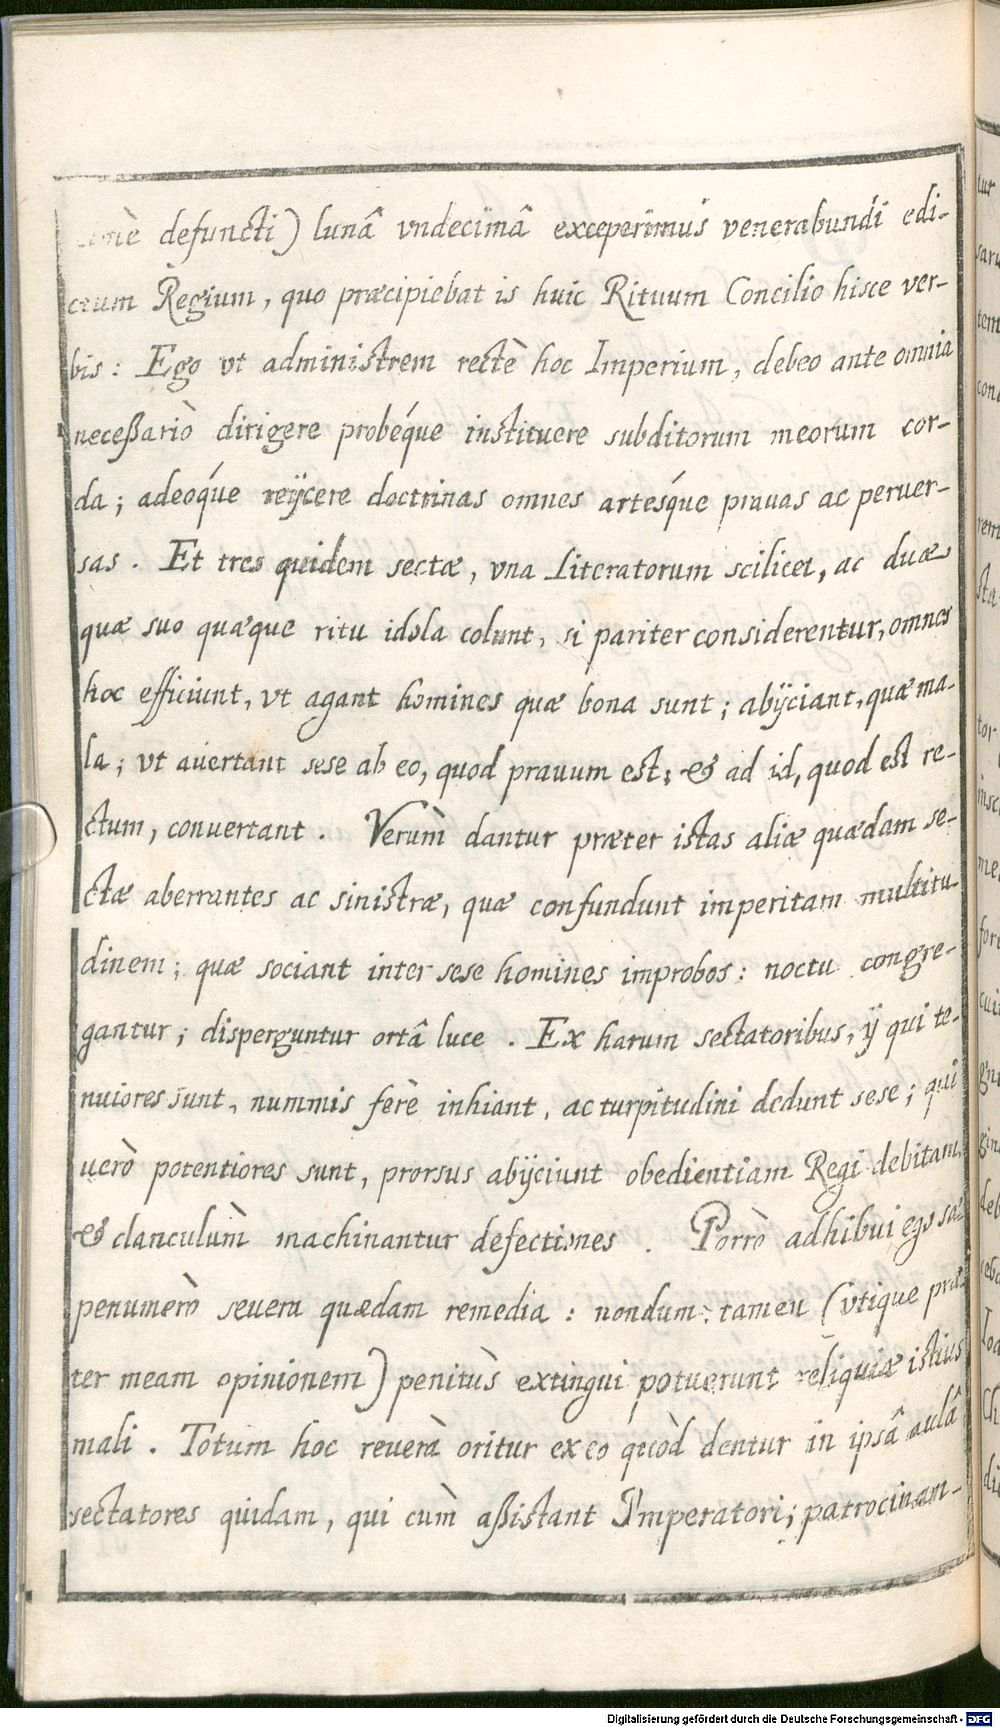 defuncti) lunâ vndecimâ exceperimus venerabundi edi-
ctum Regium, quo præcipiebat is huic Rituum Concilio hisce ver-
bis: Ego vt administrem rectè hoc Imperium, debeo ante omnia
neceßariò dirigere probéque instituere subditorum meorum cor-
da; adeoque reÿcere doctrinas omnes artesque prauas ac peruer-
sas. Et tres quidem sectæ, vna Literatorum scilicet, ac duæ
quæ suo quæque ritu idola colunt, si pariter considerentur, omnes
hoc efficiunt, vt agant homines quæ bona sunt; abÿciant, quæ ma-
la; vt auertant sese ab eo, quod prauum est; & ad id, quod est re-
ctum, conuertant. Verùm dantur præter istas aliæ quædam se-
ctæ aberrantes ac sinistræ, quæ confundunt imperitam multitu-
dinem; quæ sociant inter sese homines improbos: noctu congre-
gantur; disperguntur ortâ luce. Ex harum sectatoribus, ÿ qui te-
nuiores sunt, nummis ferè inhiant, ac turpitudini dedunt sese; qui
uerò potentiores sunt, prorsus abÿciunt obedientiam Regi debitam,
& clanculùm machinantur defectiones. Porrò adhibui ego sæ-
penumerò seuera quædam remedia: nondum tamen (vtique præ
ter meam opinionem) penitùs extingui potuerunt reliquiæ istius
mali. Totum hoc reuerà oritur ex eo quòd dentur in ipsâ aulâ
sectatores quidam, qui cùm aßistant Imperatori; patrocinan-
Digitalisierung gefördert durch die Deutsche Forschungsgemeinschaft - DFG